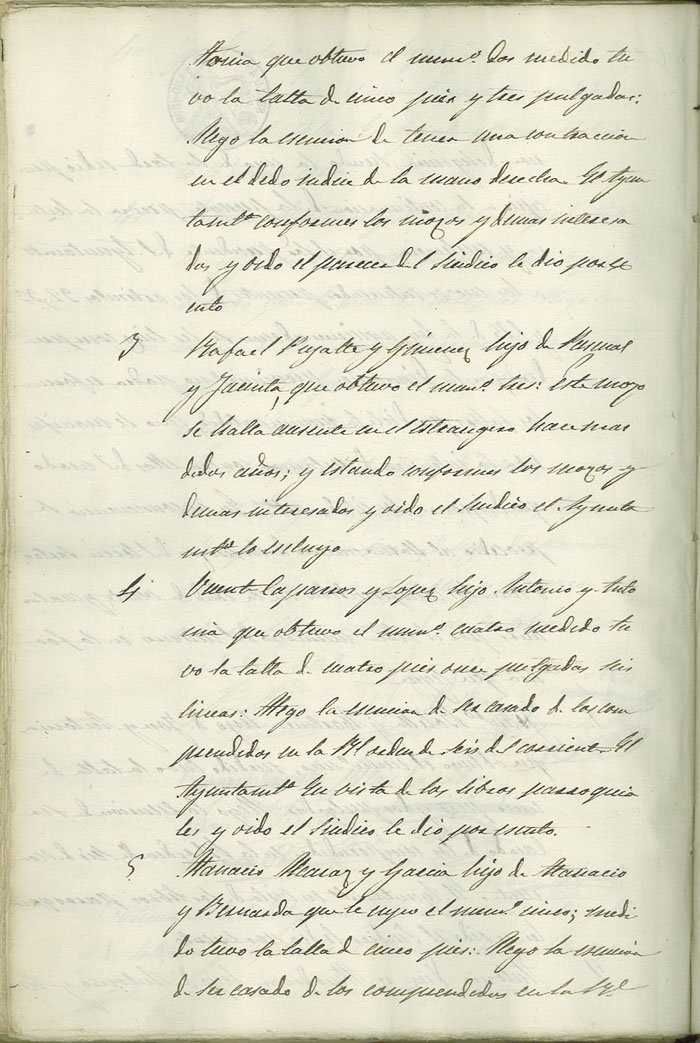 tonia que obtuvo el num.º dos medido tu
vo la talla de cinco pies y tres pulgadas:
Alego la esencion de tener una contraccion
en el dedo indice de la mano derecha. El Ayun
tamt.º conformes los mozos y demas interesa
dos y oido el parecer del Sindico le dio por es
ento
3 Rafael Pujalte y Gimenez hijo de Pascual
y Jacinta, que obtuvo el num.º tres: Este mozo
se halla ausente en el estrangero hace mas
de dos años; y estando conformes los mozos y
demas interesados y oido el Sindico el Ayunta
mt.º lo escluyo
4 Vicente Caparros y Lopez hijo Antonio y Anto
nia que obtuvo el num.º cuatro medido tu
vo la talla de cuatro pies once pulgadas seis
lineas: Alego la esencion de ser casado de los com
prendidos en la R.l orden de seis del corriente. El
Ayuntamt.º En vista de los libros parroquia
les y oido el Sindico le dio por esento.
5 Atanacio Alcaraz y Garcia hijo de Atanacio
y Bernarda que le cupo el num.º cinco; medi
do tuvo la talla d cinco pies: Alego la esencion
de ser casado de los comprendidos en la R.l